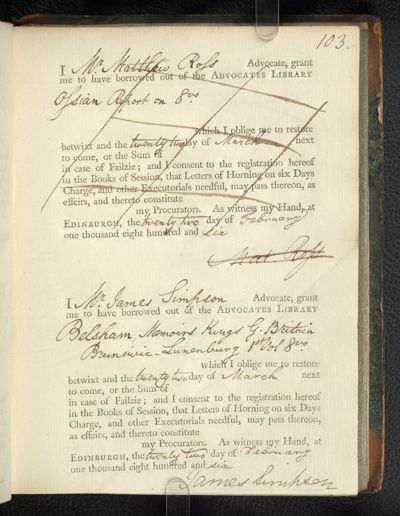 103.
I Mr. Matthew Ross Advocate, grant
me to have borrowed out of the ADVOCATES LIBRARY
Ossian Report on 8vo
which I oblige me to restore
betwixt and the twenty two day of March next
to come, or the Sum of
in case of Failzie; and I consent to the registration hereof
in the Books of Session, that Letters of Horning on six Days
Charge, and other Executorials needful, may pass thereon, as
effeirs, and thereto constitute
my Procurators. As witness my Hand, at
EDINBURGH, the twenty two day of February
one thousand eight hundred and six
Mat. Ross
I Mr. James Simpson Advocate, grant
me to have borrowed out of the ADVOCATES LIBRARY
Belsham Memoirs Kings G. Britain
Brunswic-Lunenburg 1st Vol 8vo
which I oblige me to restore
betwixt and the twenty two day of March next
to come, or the Sum of
in case of Failzie; and I consent to the registration hereof
in the Books of Session, that Letters of Horning on six Days
Charge, and other Executorials needful, may pass thereon,
as effeirs, and thereto constitute
my Procurators. As witness my Hand, at
EDINBURGH, the twenty two day of February
one thousand eight hundred and six
James Simpson